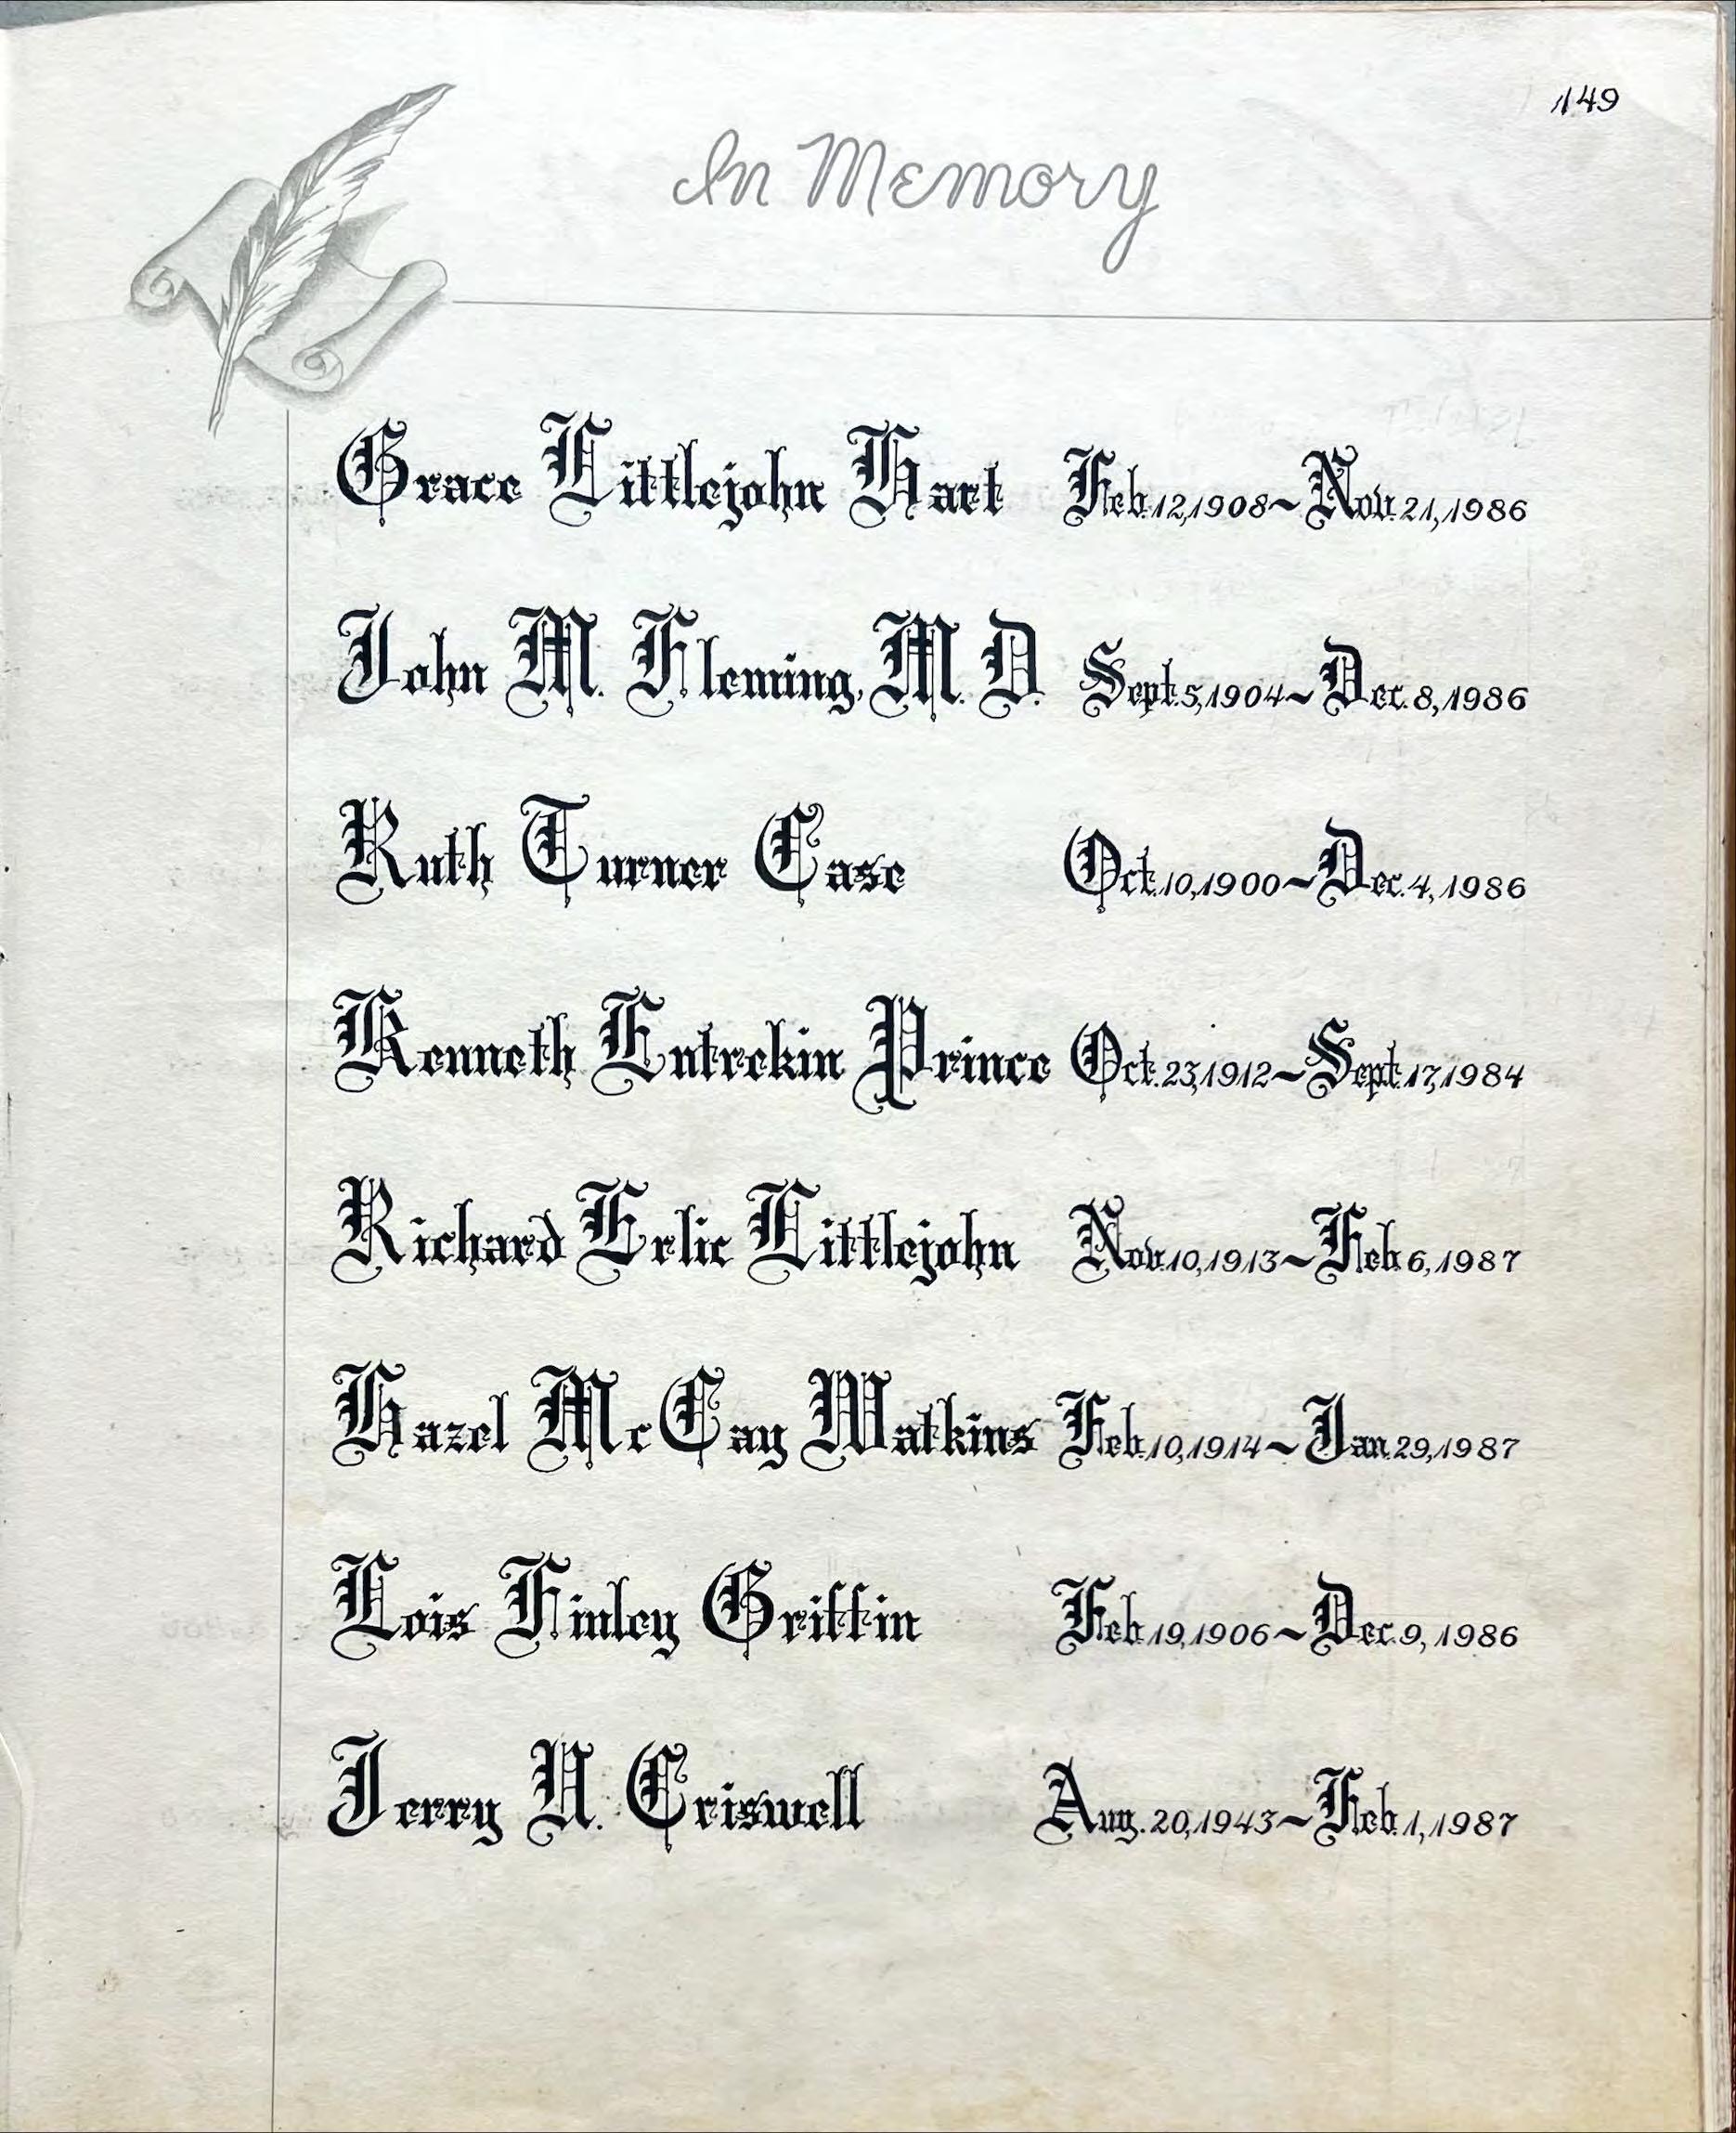 149
In Memory
Grace Littlejohn Hart Feb. 12, 1908 ~ Nov. 21, 1986
John M. Fleming, M. D. Sept. 5, 1904 ~ Dec. 8, 1986
Ruth Turner Case Oct. 10, 1900 ~ Dec. 4, 1986
Kenneth Entrekin Prince Oct. 23, 1912 ~ Sept. 17, 1984
Richard Erlie Littlejohn Nov. 10, 1913 ~ Feb. 6, 1987
Hazel McCay Watkins Feb. 10, 1914 ~ Jan. 29, 1987
Lois Finley Griffin Feb. 19, 1906 ~ Dec. 9, 1986
Jerry Criswell Aug. 20, 1943 ~ Feb. 1, 1987